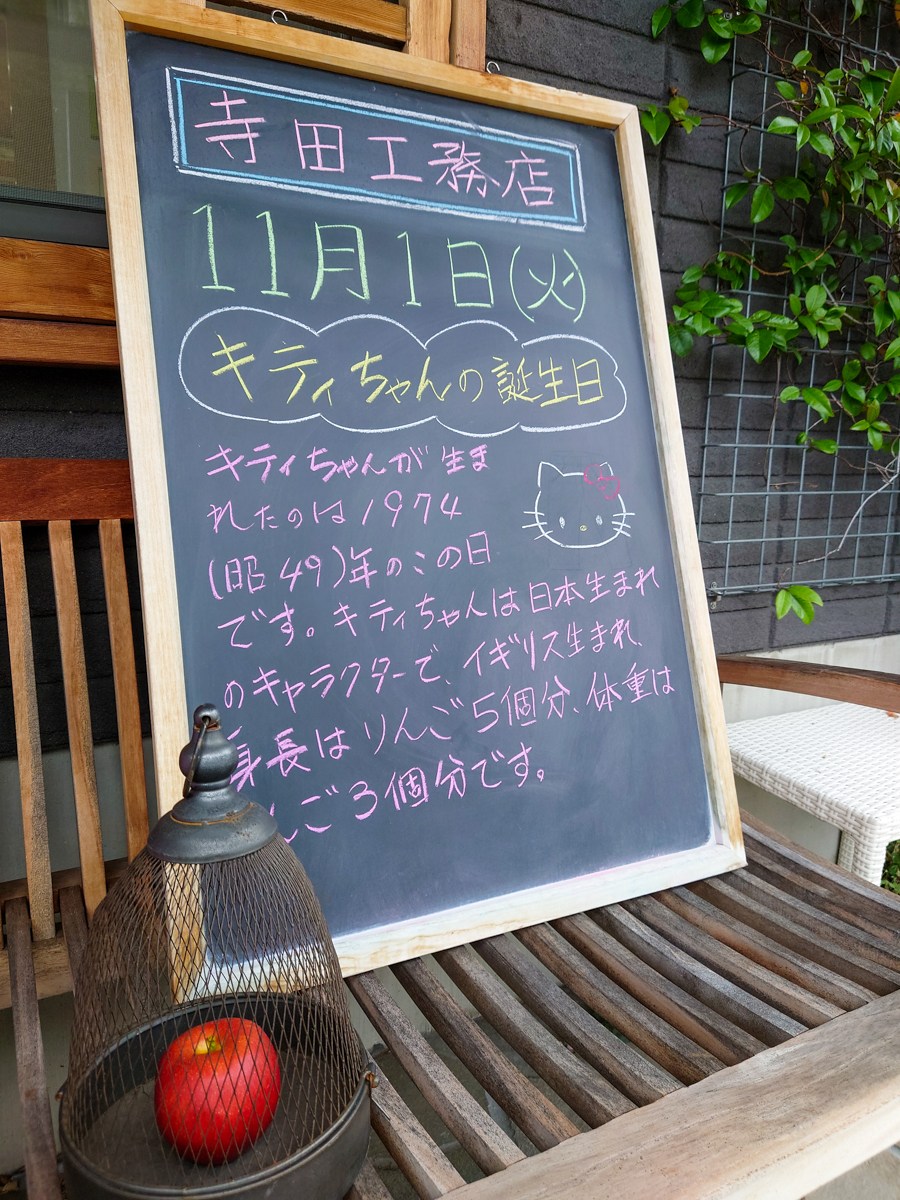 寺田工務店
11月1日(火)
キティちゃんの誕生日
キティちゃんが生ま
れたのは1974
(昭49)年のこの日
です。キティちゃんは日本生まれ
のキャラクターで、イギリス生まれ、
身長はりんご5個分、体重は
んご3個分です。